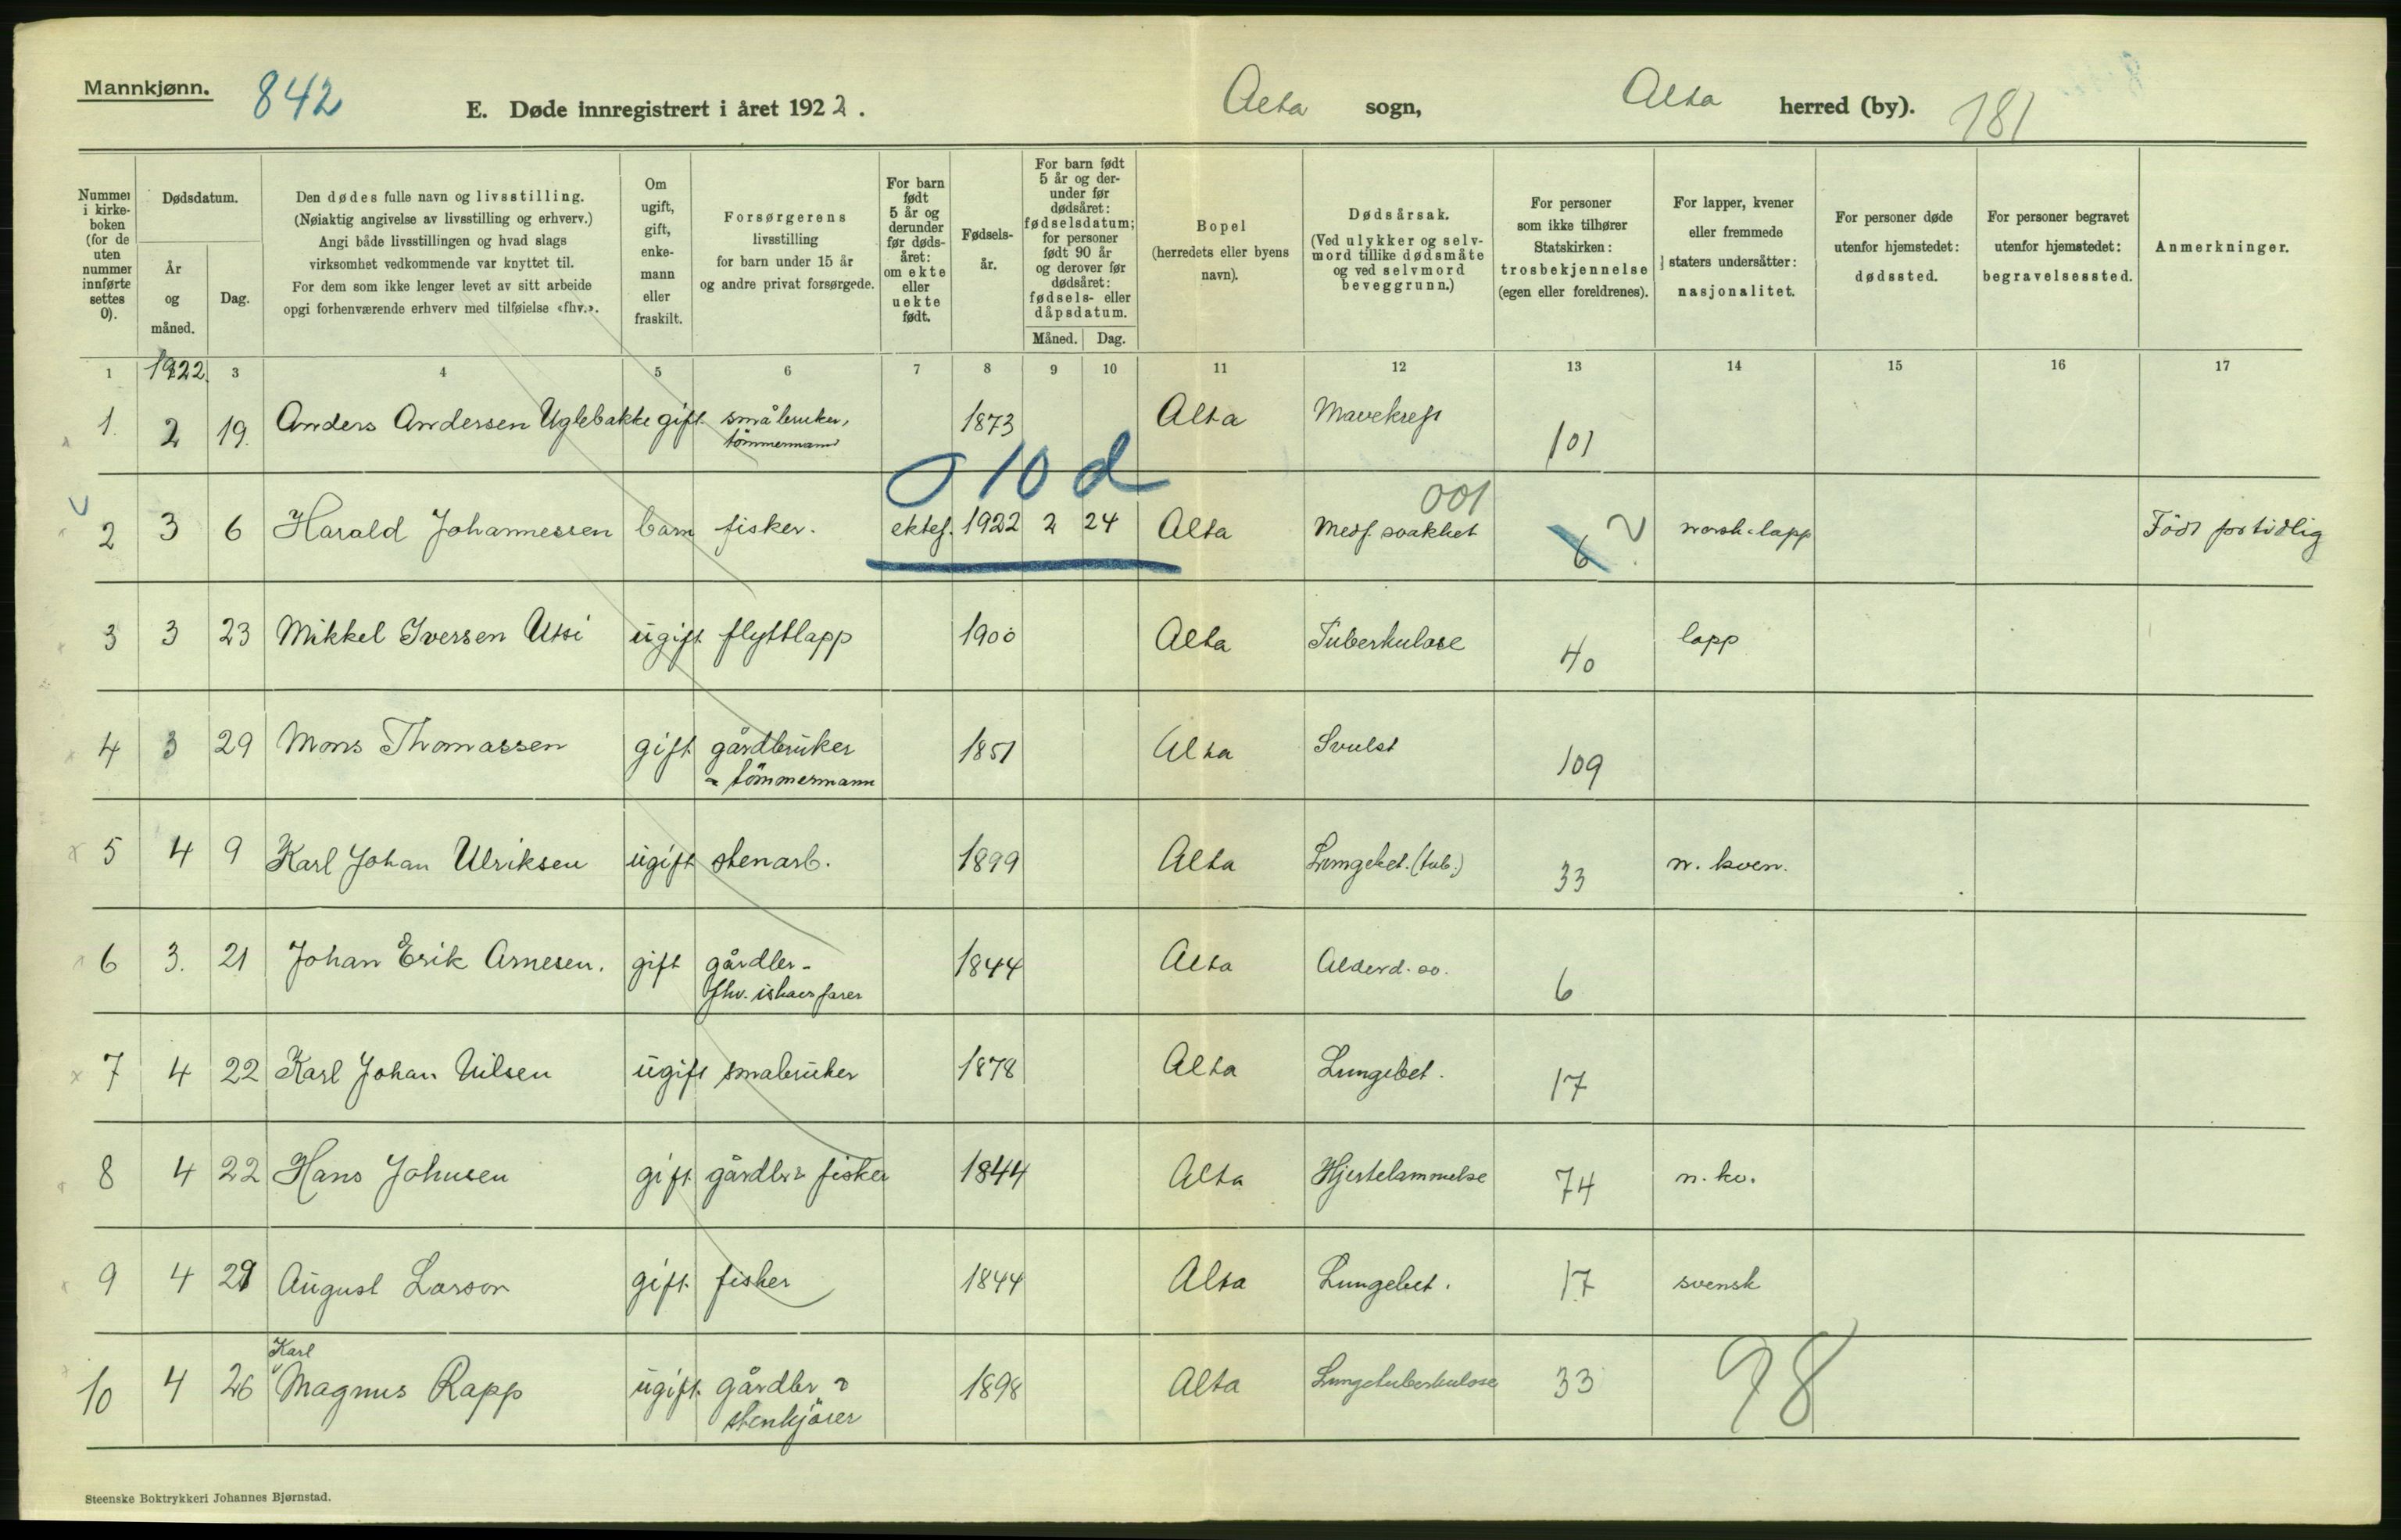 Mannkjønn.
842
E. Døde innregistrert i året 1922.
Alta sogn,
Alta herred (by).
181
Nummer i kirkeboken (for de uten nummer innførte settes 0).
Dødsdatum.
År og måned.
Dag.
Den dødes fulle navn og livsstilling.
(Nøiaktig angivelse av livsstilling og erhverv.)
Angi både livsstillingen og hvad slags
virksomhet vedkommende var knyttet til.
For dem som ikke lenger levet av sitt arbeide
opgi forhenværende erhverv med tilføielse «fhv.».
Om ugift, gift, enkemann eller fraskilt.
Forsørgerens
livsstilling
for barn under 15 år
og andre privat forsørgede.
For barn født 5 år og derunder før dødsåret: om ekte eller uekte født.
Fødselsår.
For barn født 5 år og derunder før dødsåret: fødselsdatum; for personer født 90 år og derover før dødsåret: fødsels- eller dåpsdatum.
Måned. Dag.
Bopel
(herredets eller byens
navn).
Dødsårsak.
(Ved ulykker og selvmord tillike dødsmåte og ved selvmord beveggrunn.)
For personer
som ikke tilhører
Statskirken:
trosbekjennelse
(egen eller foreldrenes).
For lapper, kvener
eller fremmede
staters undersåtter:
nasjonalitet.
For personer døde
utenfor hjemstedet:
dødssted.
For personer begravet
utenfor hjemstedet:
begravelsessted.
Anmerkninger.
1 1922. 3 4 5 6 7 8 9 10 11 12 13 14 15 16 17
1. 2 19. Anders Andersen Uglebakke gift småbruker, 1873 Alta Mavekreft 101
tömmermann
10 d
001
2 3 6 Harald Johannessen barn fisker. ektef. 1922 2 24 Alta Medf. svakhet 6 2 norsk-lapp Født for tidlig
3 3 23 Mikkel Iversen Utsi ugift flyttlapp 1900 Alta Tuberkulose 40 lapp
4 3 29 Mons Thomassen gift gårdbruker 1851 Alta Svulst 109
tömmermann
5 4 9 Karl Johan Ulriksen ugift stenarb. 1899 Alta Lungebet. (tub.) 33 n. kven.
6 3. 21 Johan Erik Arnesen. gift gårdbr- 1844 Alta Alderd. sv. 6
fhv. ishavsfarer
7 4 22 Karl Johan Nilsen ugift småbruker 1878 Alta Lungebet. 17
8 4 22 Hans Johnsen gift gårdbr & fisker 1844 Alta Hjertelammelse 74 n. kv.
9 4 29 August Larson gift fisker 1844 Alta Lungebet. 17 svensk
Karl
10 4 26 Magnus Rapp ugift gårdbr & 1898 Alta Lungetuberkulose 33 98
stenkjører
Steenske Boktrykkeri Johannes Bjørnstad.